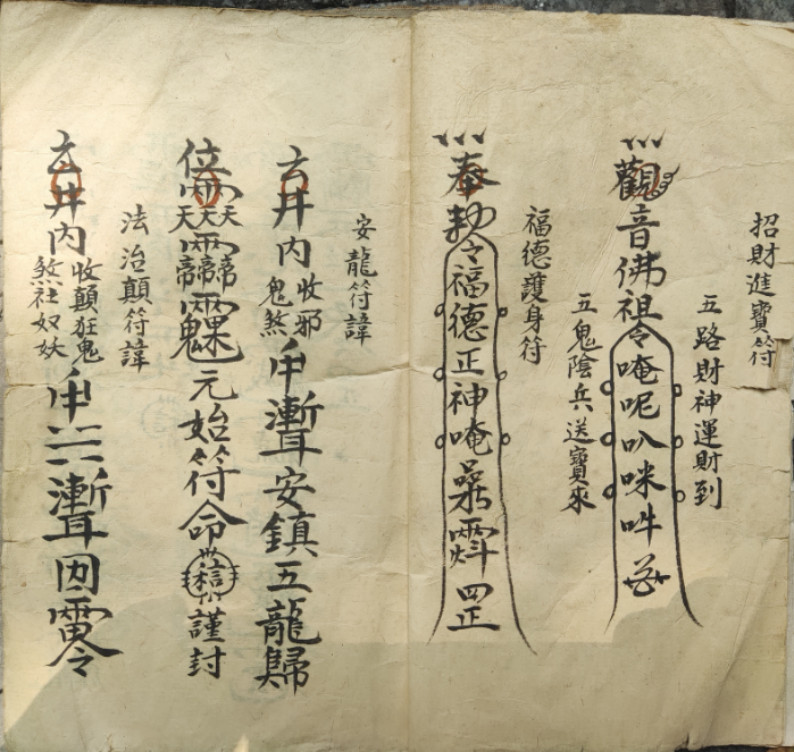 招財進寶符
五路財神運財到
觀音佛祖令唵呢叭咪吽
五鬼陰兵送寶來
福德護身符
奉勅令福德正神唵
四正
安龍符諱
井內
收邪
鬼煞
安鎮五龍歸
元始符命
謹封
法治顛符諱
井內
收顛狂鬼
煞社奴妖
令